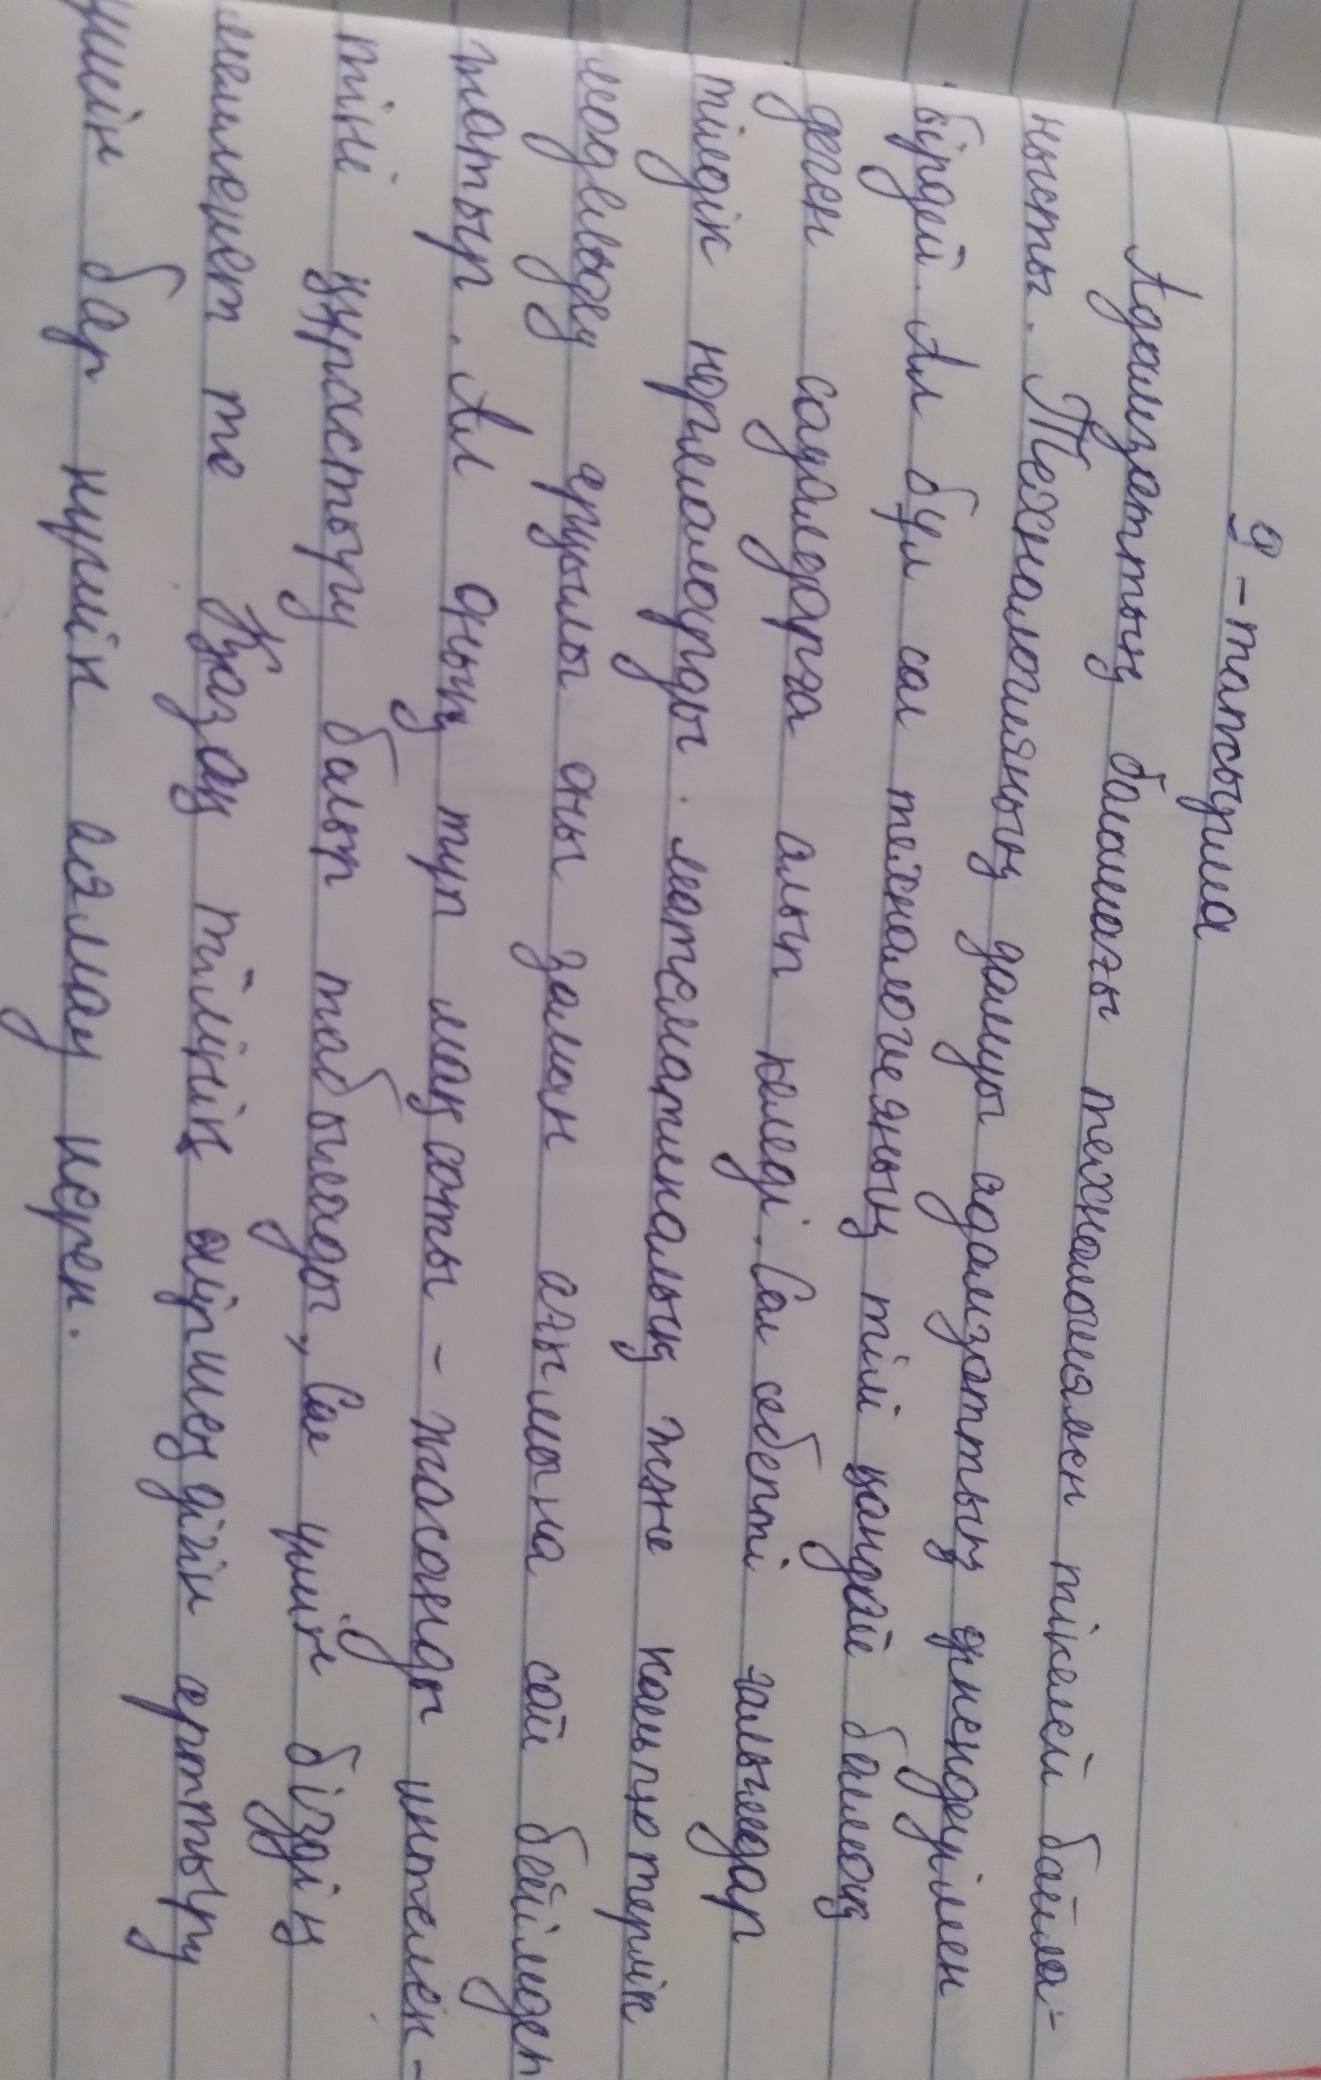 9-тапсырма
Адамзаттың болашағы технологиямен тікелей байла-
нысты. Технологияның дамуы адамзаттың өркендеуімен
бірдей. Ал бұл сол технологияның тілі қандай болмақ
деген сауалдарға алып келеді. Сол себепті ғалымдар
тілдік нормаларды математикалық және компьютерлік
модельдеу арқылы оны заман ағымына сай бейімдеп
жатыр. Ал оның түп мақсаты - жасанды интелек-
тіні құрастыру болып табылады, Сол үшін біздің
мемлекет те Қазақ тілінің өміршеңдігін арттыру
үшін бар күшін аямау керек.